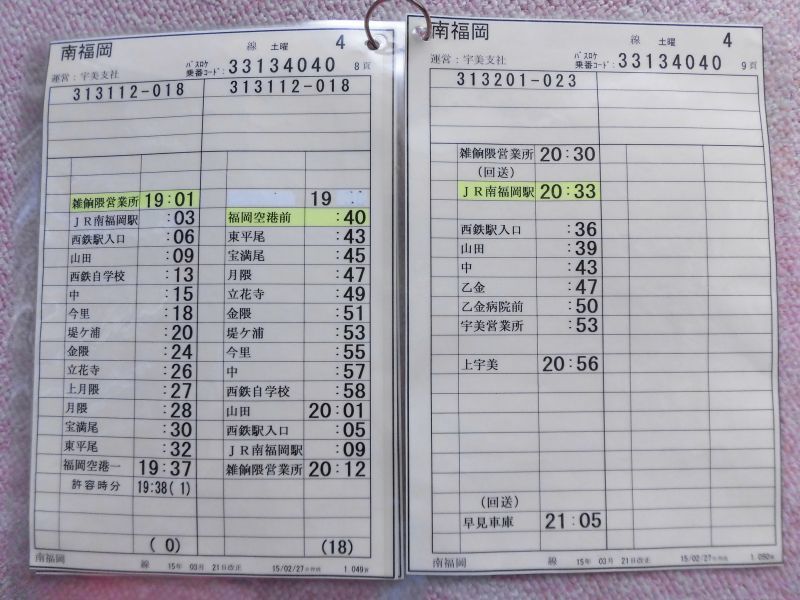 南福岡 線 土曜 4
運営：宇美支社 バスロケ乗番コード: 33134040 8頁
313112-018 313112-018
雑餉隈営業所 19:01
19
JR南福岡駅 :03
福岡空港前 :40
西鉄駅入口 :06
東平尾 :43
山田 :09
宝満尾 :45
西鉄自学校 :13
月隈 :47
中 :15
立花寺 :49
今里 :18
金隈 :51
堤ケ浦 :20
堤ケ浦 :53
金隈 :24
今里 :55
立花寺 :26
中 :57
上月隈 :27
西鉄自学校 :58
月隈 :28
山田 20:01
宝満尾 :30
西鉄駅入口 :05
東平尾 :32
JR南福岡駅 :09
福岡空港一 19:37
雑餉隈営業所 20:12
許容時分 19:38(1)
(0) (18)
南福岡 線 15年 03月 21日改正 15/02/27 1.049
南福岡 線 土曜 4
運営：宇美支社 バスロケ乗番コード: 33134040 9頁
313201-023
雑餉隈営業所 20:30
(回送)
JR南福岡駅 20:33
西鉄駅入口 :36
山田 :39
中 :43
乙金 :47
乙金病院前 :50
宇美営業所 :53
上宇美 20:56
(回送)
早見車庫 21:05
南福岡 線 15年 03月 21日改正 15/02/27 1.050